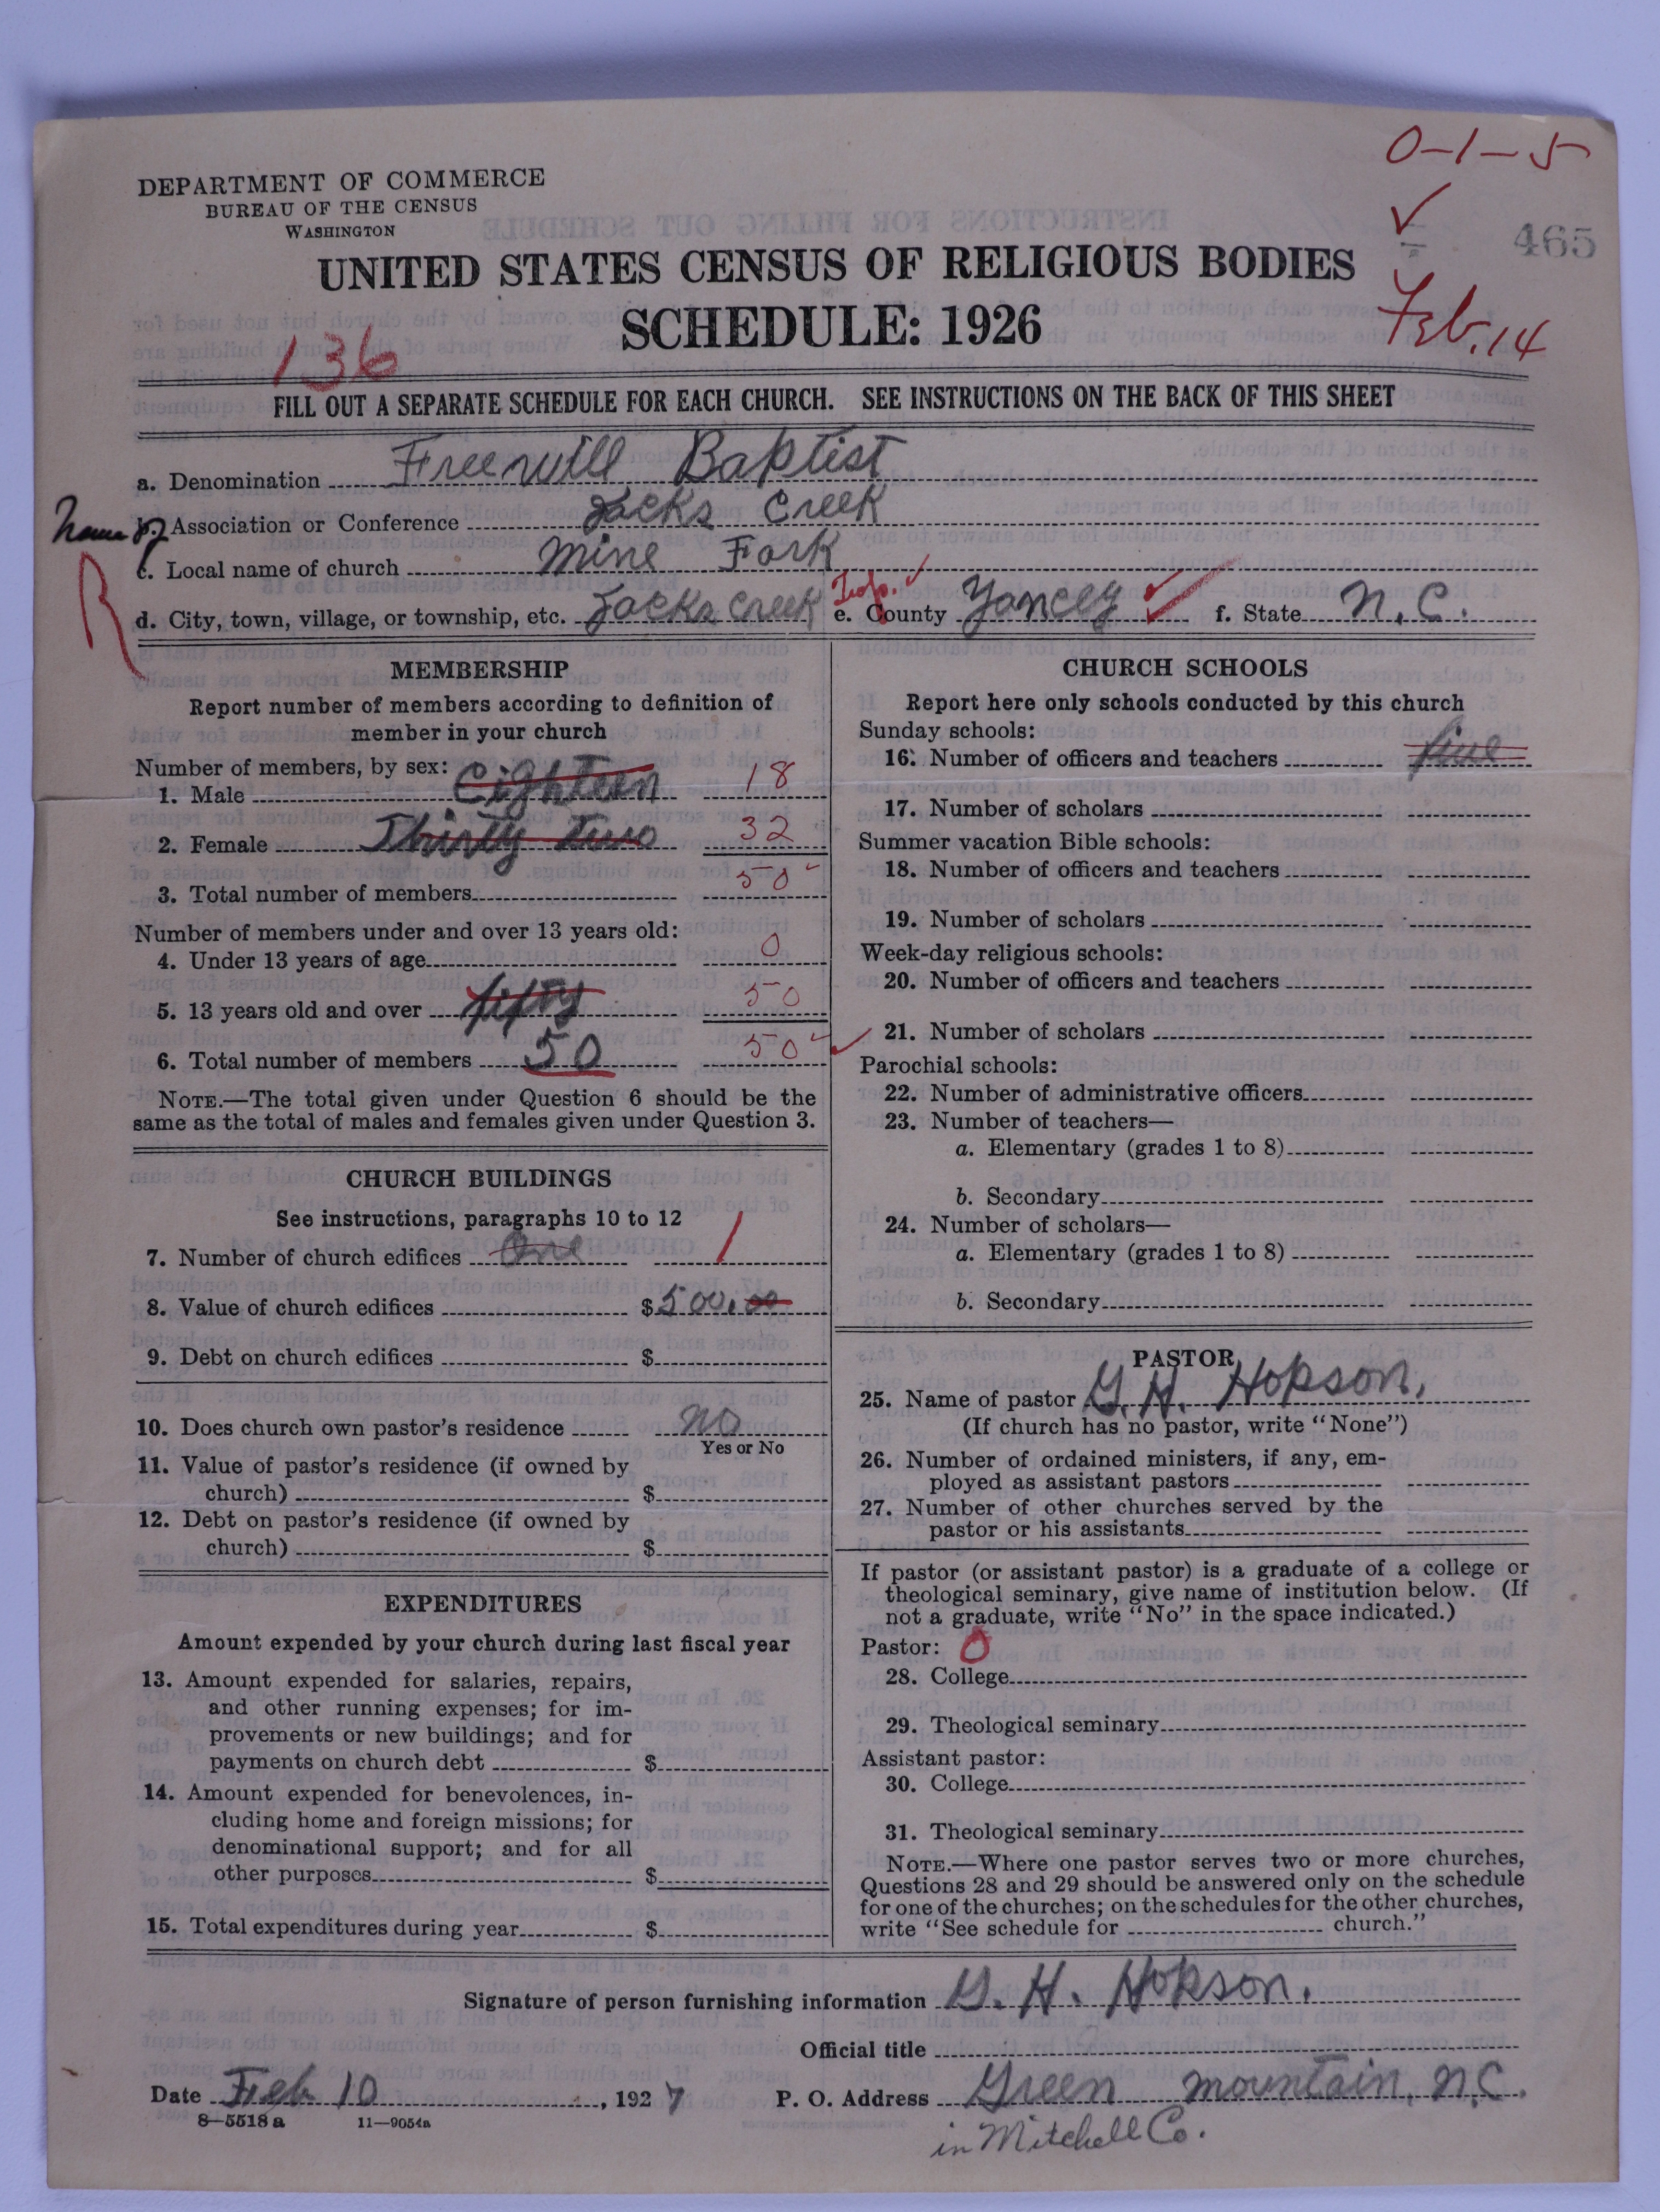 0-1-5
DEPARTMENT OF COMMERCE
BUREAU OF THE CENSUS
WASHINGTON
465
UNITED STATES CENSUS OF RELIGIOUS BODIES
SCHEDULE: 1926
Feb. 14
136
FILL OUT A SEPARATE SCHEDULE FOR EACH CHURCH. SEE INSTRUCTIONS ON THE BACK OF THIS SHEET
a. Denomination Freewill Baptist
Name of
b. Association or Conference Jacks Creek
c. Local name of church Mine Fork
R
d. City, town, village, or township, etc. Jacks Creek Twp. e. County Yancey f. State N.C.
MEMBERSHIP
Report number of members according to definition of
member in your church
Number of members, by sex:
1. Male Eighteen 18
2. Female Thirty two 32
3. Total number of members 50
Number of members under and over 13 years old:
4. Under 13 years of age 0
5. 13 years old and over fifty 50
6. Total number of members 50 50
NOTE.—The total given under Question 6 should be the
same as the total of males and females given under Question 3.
CHURCH BUILDINGS
See instructions, paragraphs 10 to 12
7. Number of church edifices One 1
8. Value of church edifices $500.00
9. Debt on church edifices $
10. Does church own pastor's residence no
Yes or No
11. Value of pastor's residence (if owned by
church) $
12. Debt on pastor's residence (if owned by
church) $
EXPENDITURES
Amount expended by your church during last fiscal year
13. Amount expended for salaries, repairs,
and other running expenses; for im-
provements or new buildings; and for
payments on church debt $
14. Amount expended for benevolences, in-
cluding home and foreign missions; for
denominational support; and for all
other purposes $
15. Total expenditures during year $
CHURCH SCHOOLS
Report here only schools conducted by this church
Sunday schools:
16. Number of officers and teachers five
17. Number of scholars
Summer vacation Bible schools:
18. Number of officers and teachers
19. Number of scholars
Week-day religious schools:
20. Number of officers and teachers
21. Number of scholars
Parochial schools:
22. Number of administrative officers
23. Number of teachers—
a. Elementary (grades 1 to 8)
b. Secondary
24. Number of scholars—
a. Elementary (grades 1 to 8)
b. Secondary
PASTOR
25. Name of pastor G. H. Hopson.
(If church has no pastor, write "None")
26. Number of ordained ministers, if any, em-
ployed as assistant pastors
27. Number of other churches served by the
pastor or his assistants
If pastor (or assistant pastor) is a graduate of a college or
theological seminary, give name of institution below. (If
not a graduate, write "No" in the space indicated.)
Pastor: 0
28. College
29. Theological seminary
Assistant pastor:
30. College
31. Theological seminary
NOTE.—Where one pastor serves two or more churches,
Questions 28 and 29 should be answered only on the schedule
for one of the churches; on the schedules for the other churches,
write "See schedule for church."
Signature of person furnishing information G. H. Hopson.
Official title
Date Feb 10, 1927 P. O. Address Green Mountain, N.C.
8—5518 a 11—9054a
in Mitchell Co.